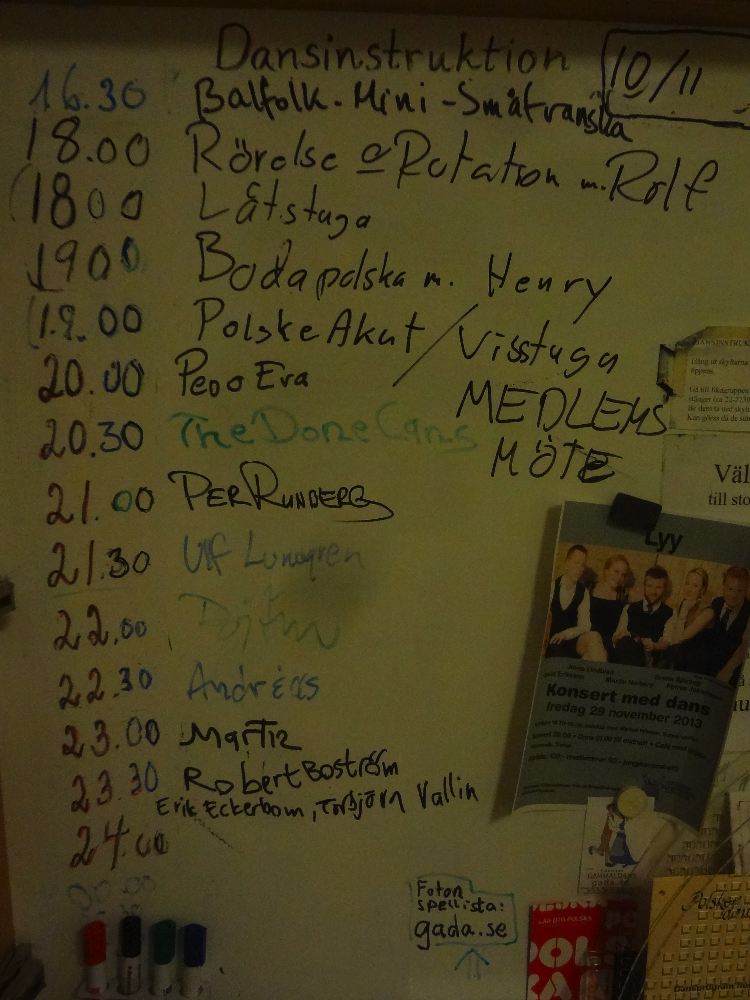 Dansinstruktion 10/11
16.30 Balfolk - Mini - Småfranska
18.00 Rörelse o Rotation m. Rolf
(1800 Låtstuga
1900 Bodapolska m. Henry
(19.00 PolskeAkut / Visstuga
20.00 Peo o Eva
MEDLEMS
20.30 TheDoneCans
MÖTE
21.00 PER RUNBERG
21.30 Ulf Lundgren
22.00
22.30 Andréas
23.00 Martin
23.30 Robert Boström
Erik Eckerbom, Torbjörn Vallin
24.00
00.00
Foton
spellista:
gada.se
DANSINSTRUK
Väl
till sto
Lyy
Konsert med dans
fredag 29 november 2013
GAMMALDANS
gada.se
POL
Polskor